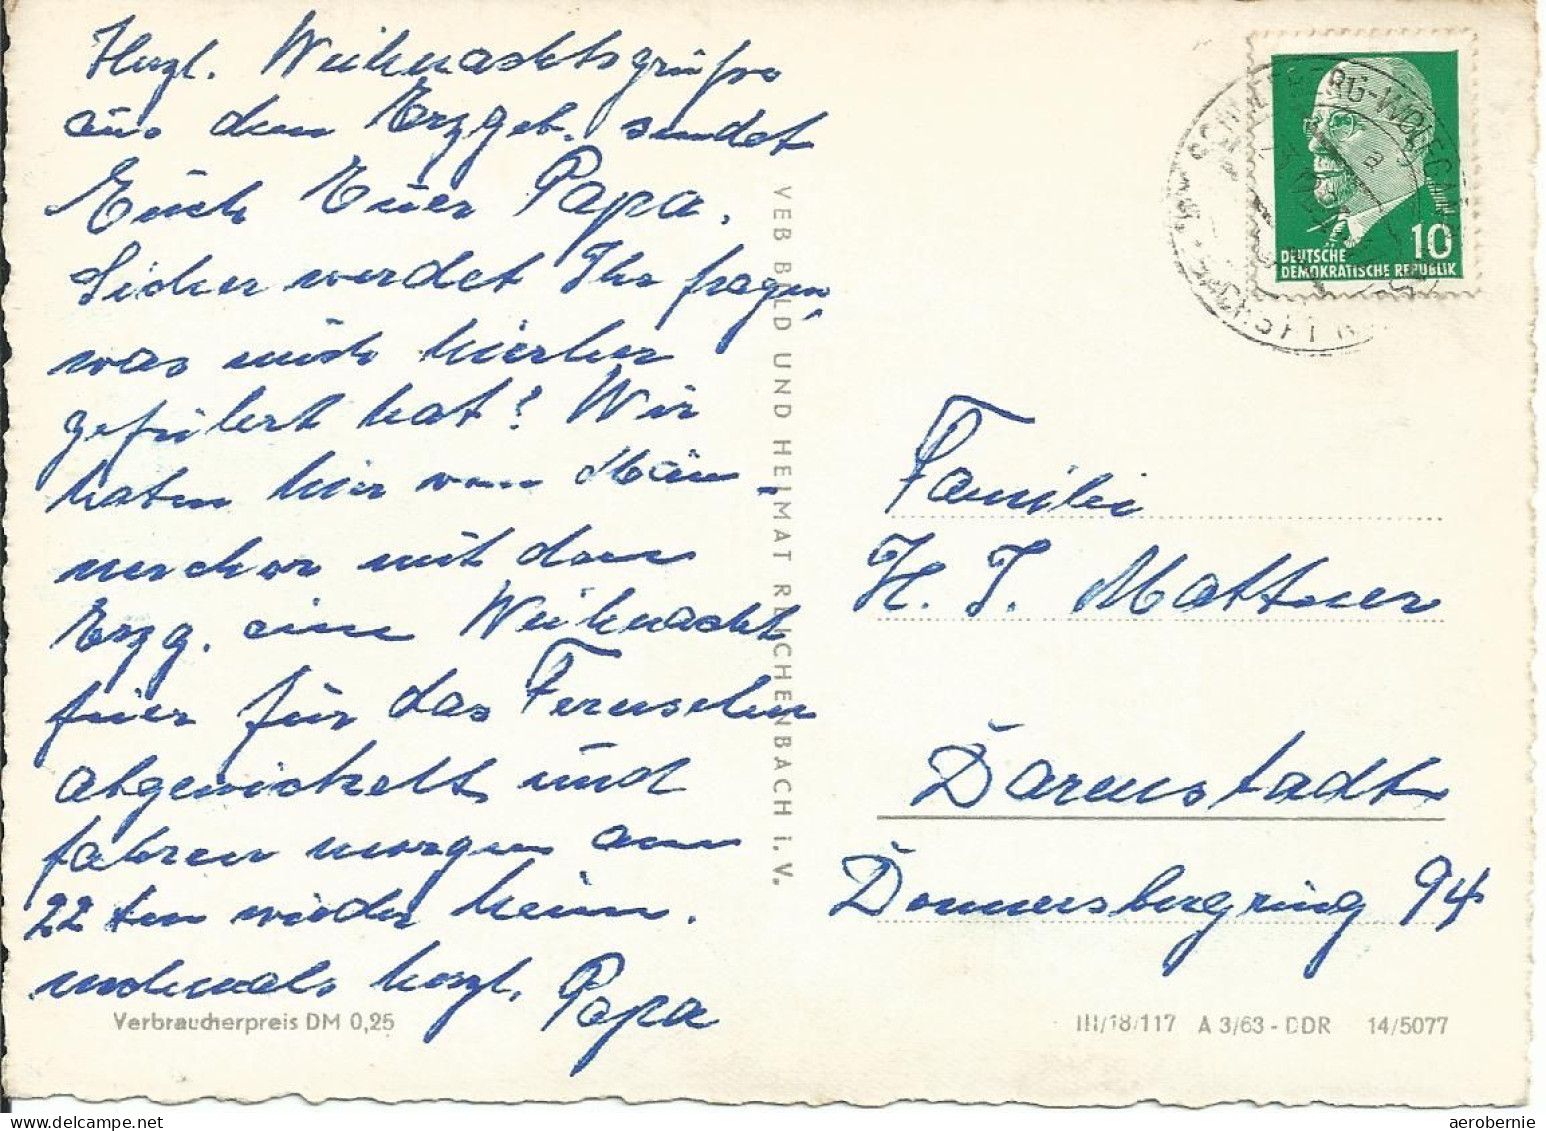 Herzl. Weihnachtsgrüße
aus dem Erzgeb. sendet
Euch Euer Papa.
Sicher werdet Ihr fragen,
was mich hierher
geführt hat? Wir
haben hier vom Män-
nerchor mit dem
Erzg. eine Weihnacht
feier für das Fernsehen
abgewickelt und
fahren morgen am
22ten wieder heim.
nochmals herzl. Papa
Verbraucherpreis DM 0,25
VEB BILD UND HEIMAT REICHENBACH i. V.
10
DEUTSCHE
DEMOKRATISCHE REPUBLIK
Familie
H. J. Mattner
Darmstadt
Donnersbergring 94
III/18/117 A 3/63 - DDR 14/5077
aerobernie